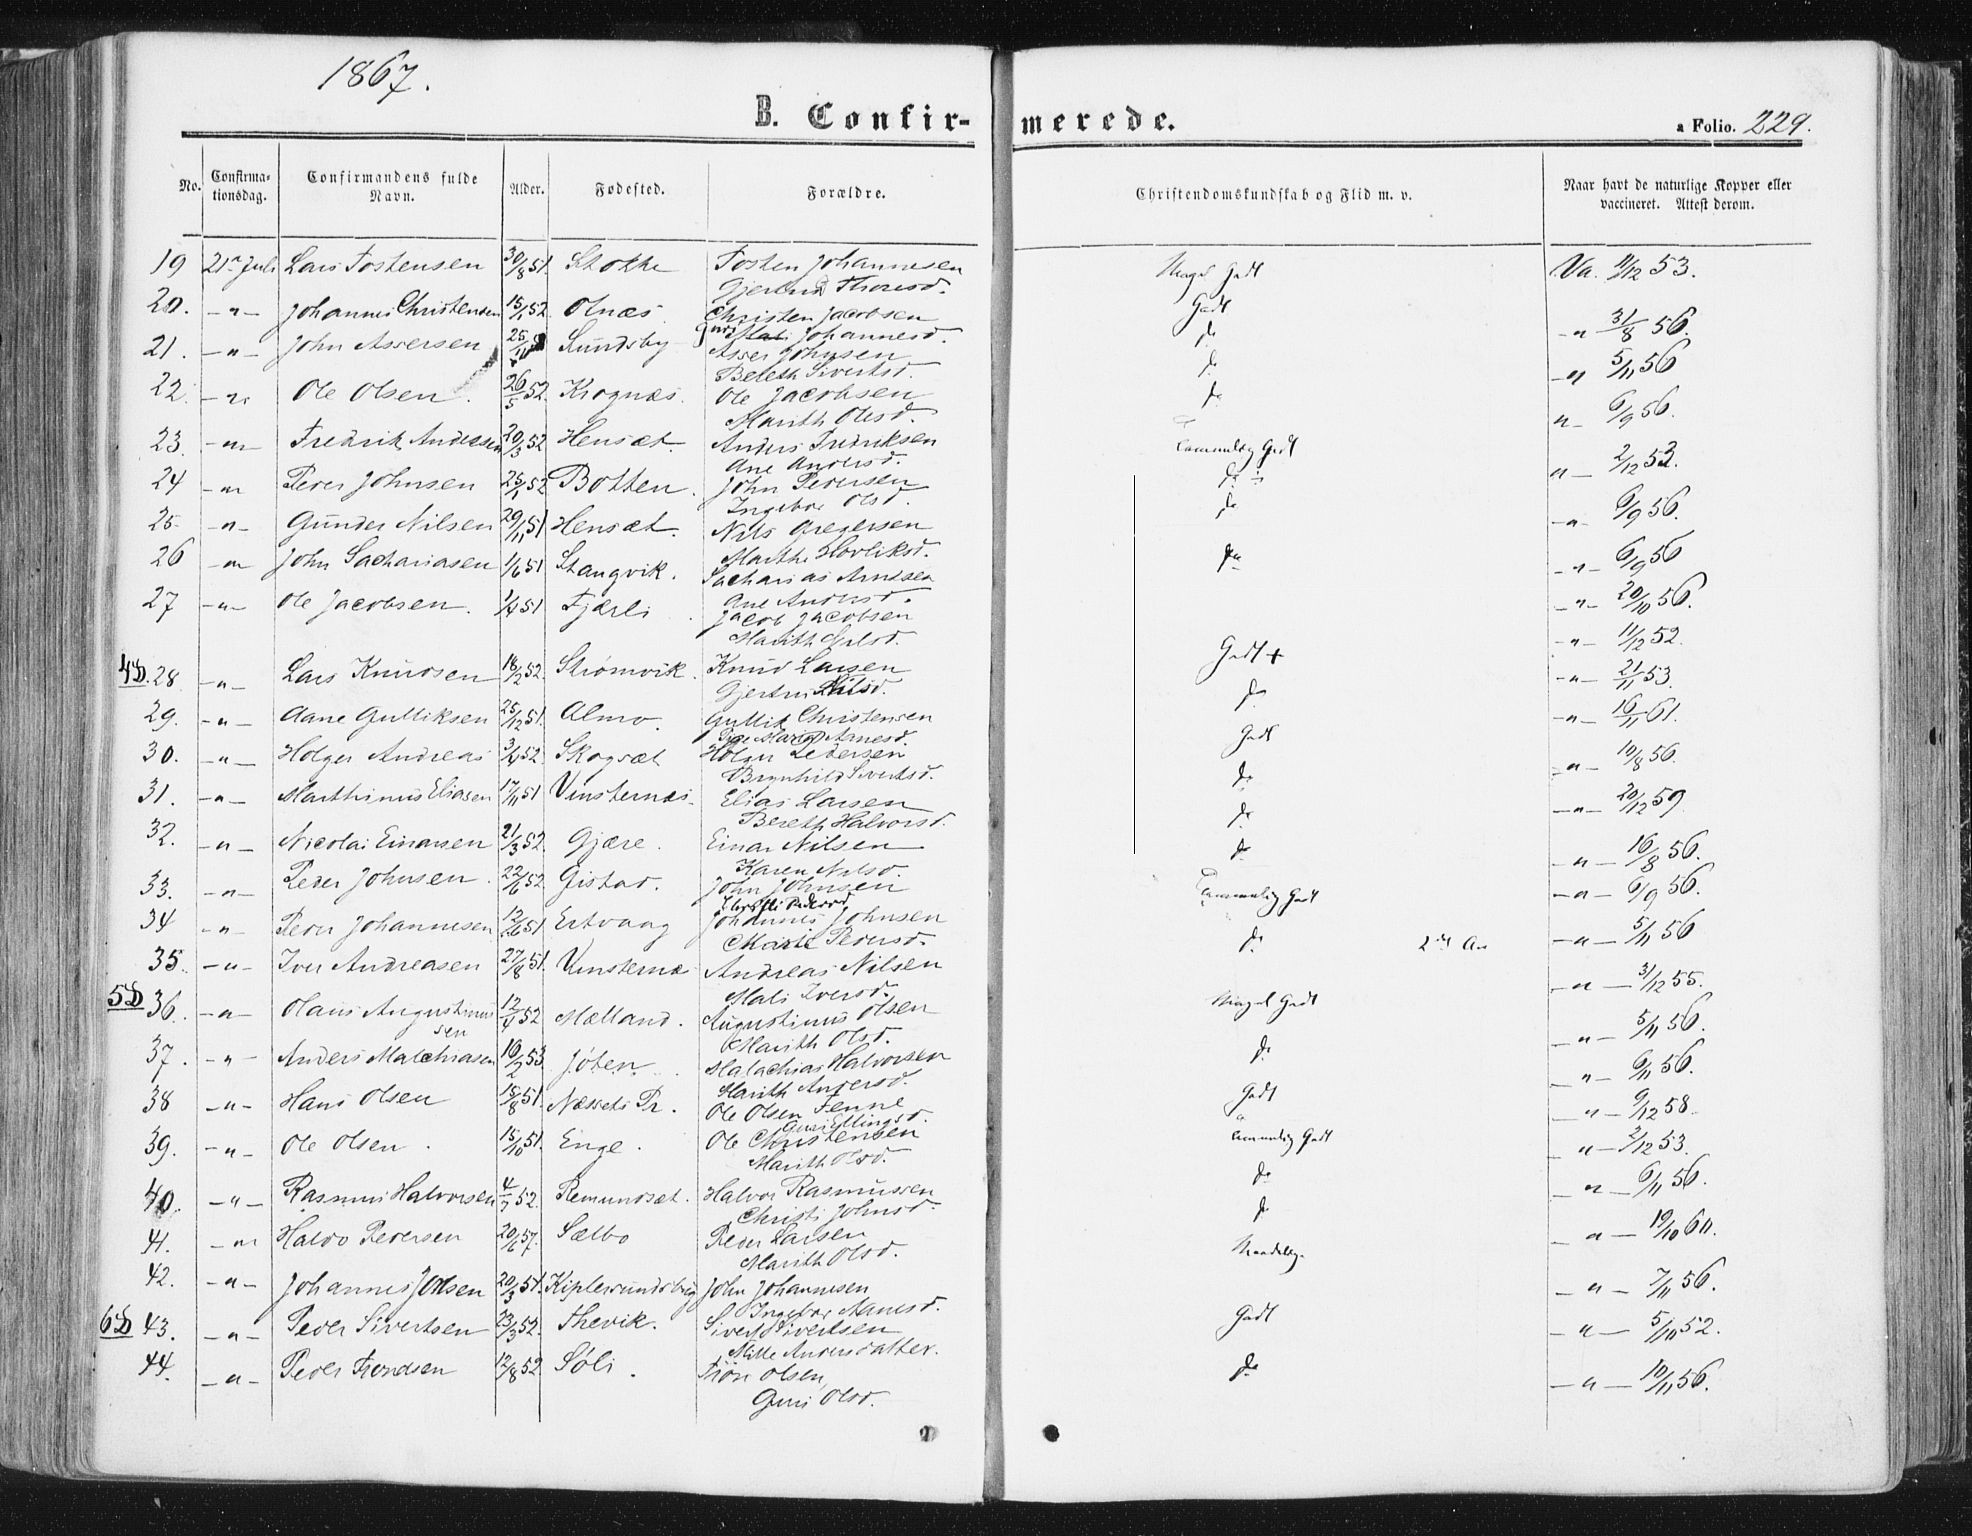 1867.
B. Confirmerede.
a Folio. 229.
No. Confirmationsdag. Confirmandens fulde Navn. Alder. Fødested. Forældre. Christendomskundskab og Flid m. v. Naar havt de naturlige Kopper eller vaccineret. Attest derom.
19 21de Juli Lars Tostensen 30/8 51. Stokke Tosten Johannesen Meget Godt Va. 11/12 53.
Gjertrud Thoresd.
20. -"- Johannes Christensen 15/1 52 Olnæs Christen Jacobsen Godt -"- 31/8 56.
Guri Johannesd.
21. -"- John Assersen 25/11 Sundsby Asser Johnsen do -"- 5/11 56
Bereth Sivertsd.
22 -"- Ole Olsen. 26/5 52 Krognæs. Ole Jacobsen do "- 6/9 56.
Marith Olsd.
23. -"- Fredrik Andersen 20/3 52 Hensæt. Anders Fredriksen Temmelig Godt "- 2/12 53.
Ane Andersd.
24 -"- Peder Johnsen 25/1 52 Botten. John Pedersen do -"- 6/9 56.
Ingebor Olsd.
25. -"- Gunder Nilsen 29/11 51 Hensæt. Nils Gregersen do -"- 6/9 56
Marthe Hovliksd.
26 -"- John Sachariasen 1/6 51 Stangvik. Sacharias Arntsen do -"- 20/10 56.
Ane Andersd.
27 -"- Ole Jacobsen. 1/4 51 Fjærli Jacob Jacobsen -"- 11/12 52.
Marith
4D. 28 -"- Lars Knudsen 18/2 52. Strømvik. Knud Larsen Godt + -"- 21/11 53
Gjertru Nilsd.
29. -"- Aane Gulliksen 25/12 51. Almo. Gullik Christensen do -"- 16/11 61.
Marie Arnesd.
30. -"- Holger Andreas 3/4 52. Skogsæt Holger Pedersen Godt -"- 10/8 56.
Brynhild Sivertsd.
31. -"- Marthinus Eliasen 17/11 51 Vinsternæs. Elias Larsen do -"- 20/12 59.
Bereth Halvorsd.
32. -"- Nicolai Einarsen 21/3 52. Gjære. Einar Nilsen do -"- 16/8 56.
Karen Nilsd.
33. -"- Peder Johnsen. 22/6 52 Gistad. John Johnsen do -"- 6/9 56.
Pedersd.
34 -"- Peder Johannesen 12/6 51 Ertvaag Johannes Johnsen Temmelig Godt -"- 5/11 56
Marie Pedersd.
35. -"- Iver Andreasen 27/8 51. Vinsternæs Andreas Nilsen do -"- 31/12 55.
Mali Iversd.
5D 36. -"- Olaus Augustinussen 12/4 52 Mælland. Augustinus Olsen Meget Godt -"- 5/11 56.
Marith Olsd.
37. -"- Anders Malachiasen 16/2 53. Jøten. Malachias Halvorsen do -"- 6/11 56.
Marith Andersd.
38 -"- Hans Olsen 15/8 51. Næssets Pr. Ole Olsen Tenne Godt -"- 9/12 58.
Guri Ellingsd.
39. -"- Ole Olsen. 15/10 51. Enge. Ole Christensen Temmelig Godt "- 2/12 53.
Marith Olsd.
40. -"- Rasmus Halvorsen 4/7 52. Remundsæt. Halvor Rasmussen do -"- 6/11 56.
Christi Johnsd.
41. -"- Halvo Pedersen 20/6 57. Sælbo Peder Larsen do -"- 19/10 60.
Marith Olsd.
42. -"- Johannes Johnsen 20/3 51. John Johannesen Maadelig. -"- 7/11 56.
Ingebor Aanesd.
6D 43. -"- Peder Sivertsen 23/3 52. Thevik. Sivert Sivertsen Godt -"- 5/10 52.
Mille Andersdatter.
44. -"- Peder Trondsen 12/8 52 Søli. Tron Olsen, do -"- 10/11 56.
Guri Olsd.